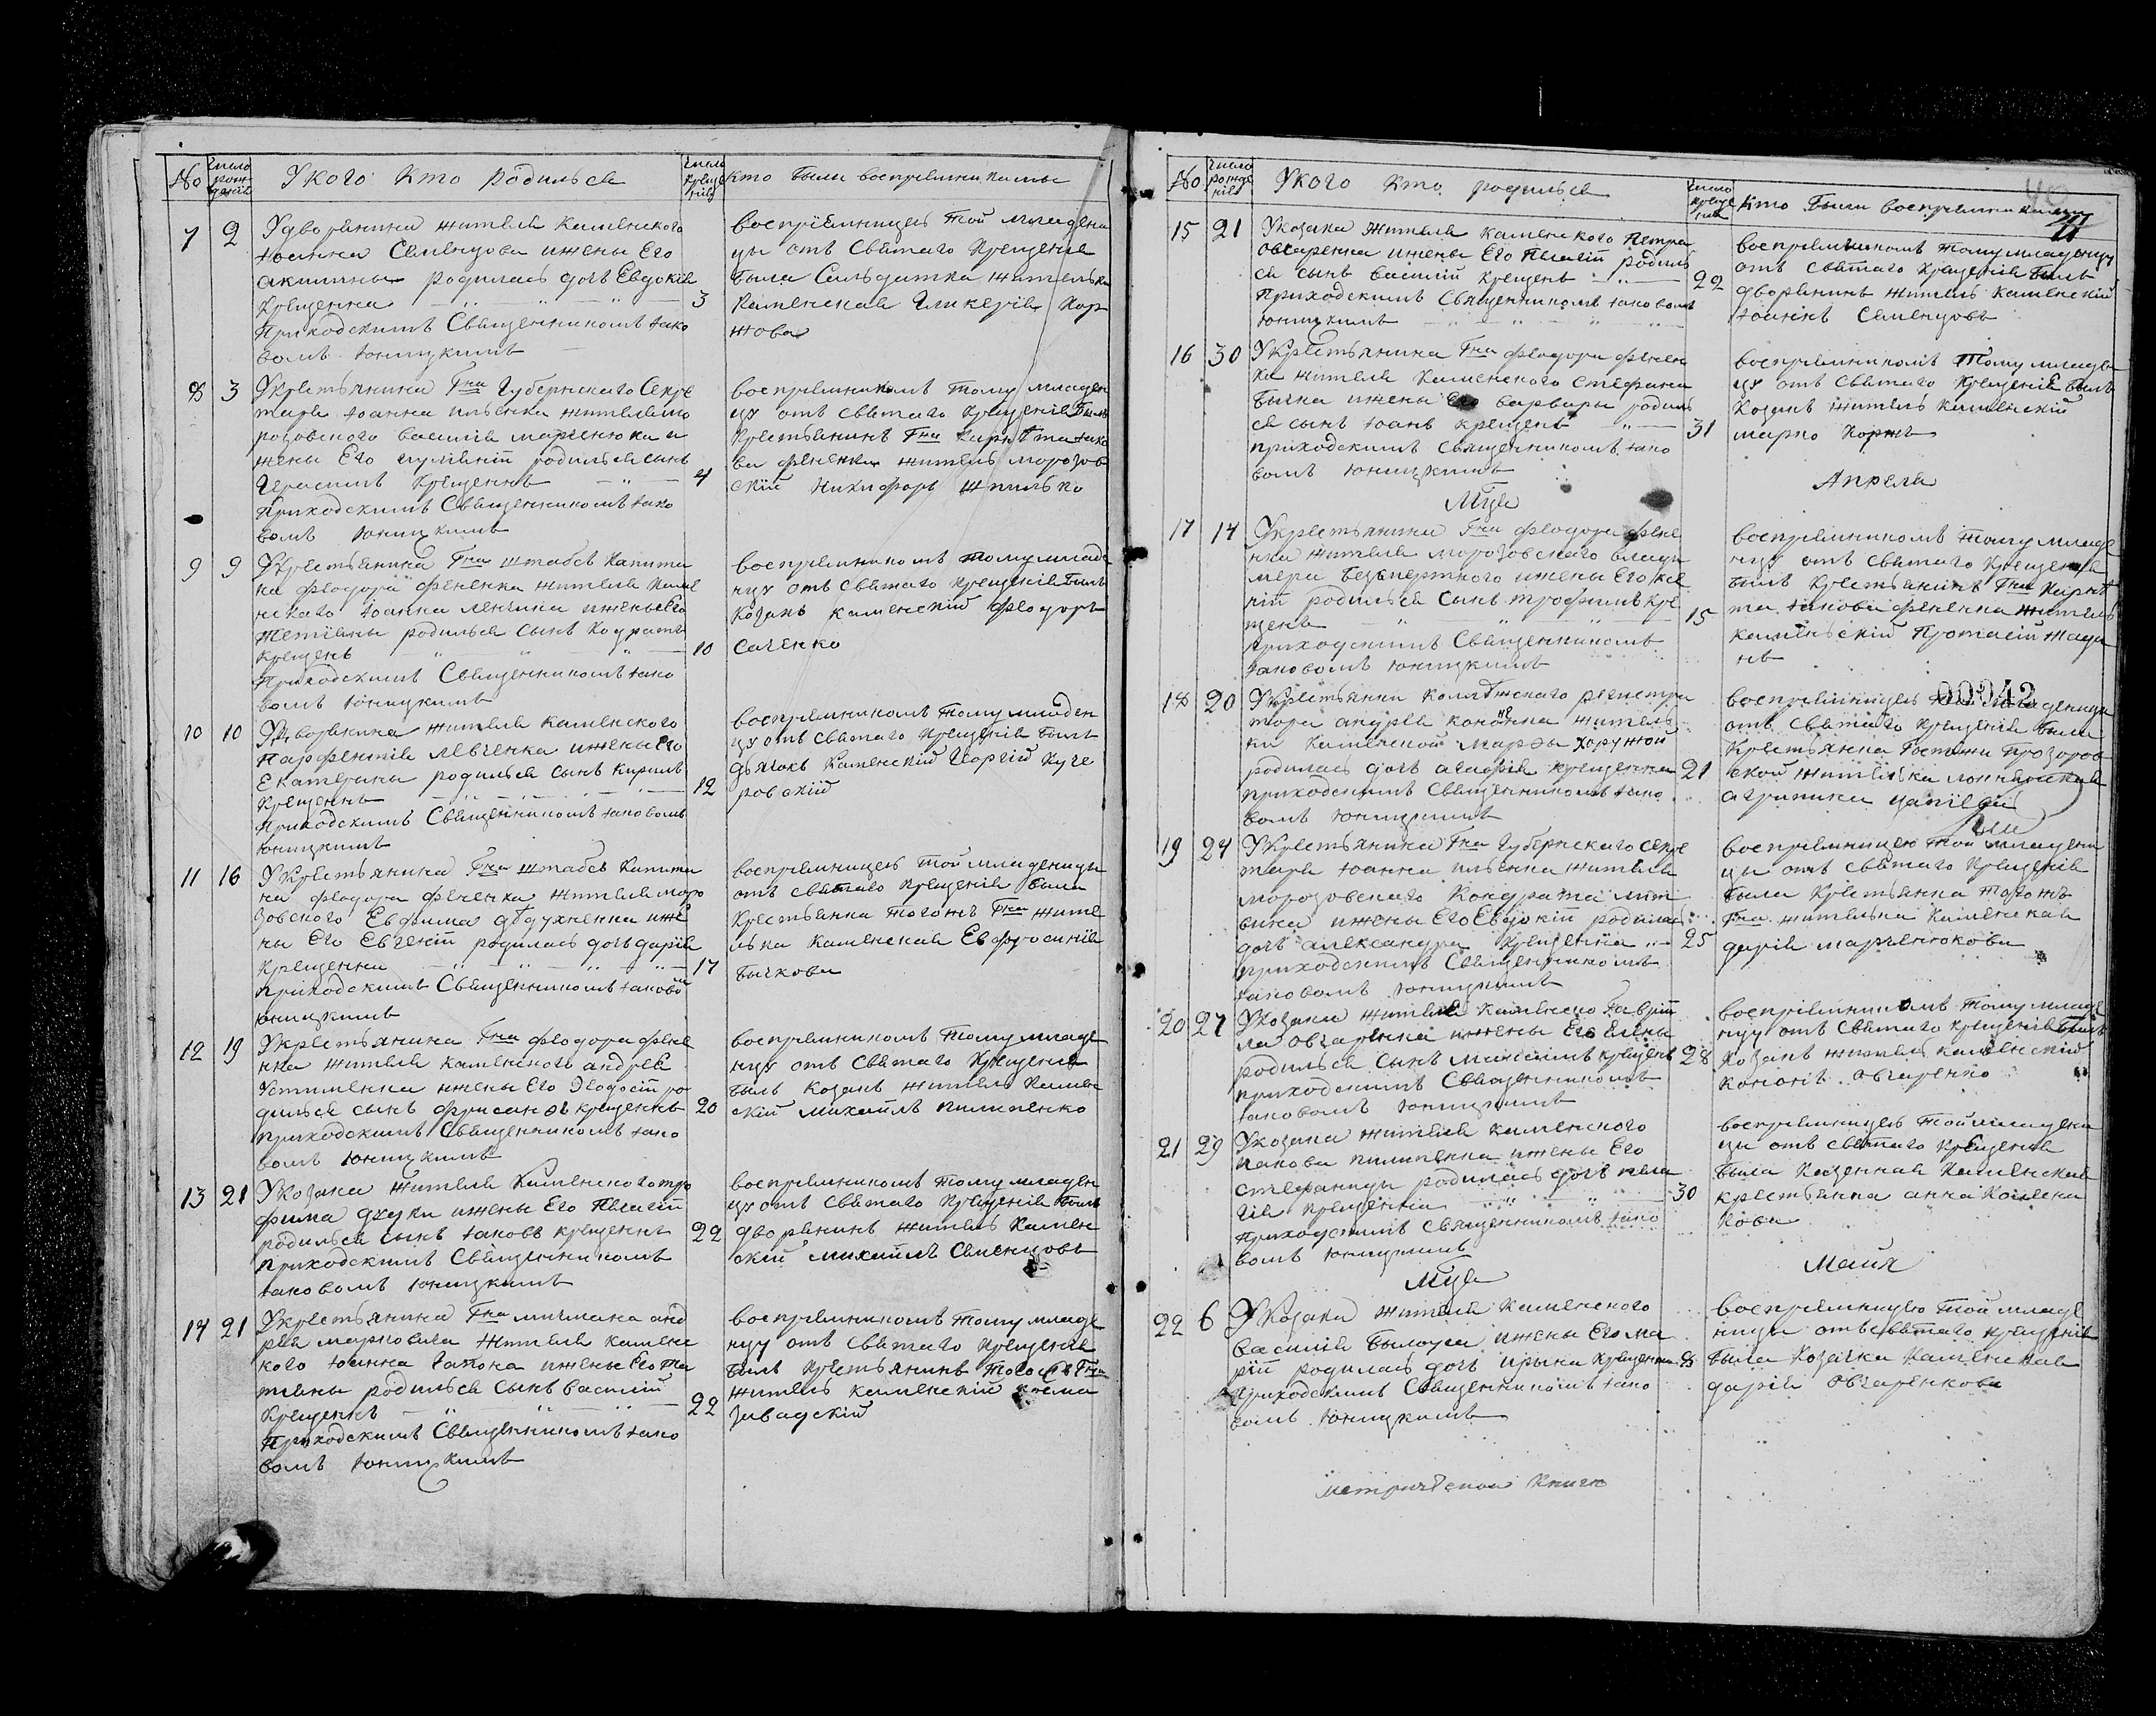 № Число рождения У кого кто родился Число крещения кто были восприемниками
7 2 У дворянина жителя Каменского
Іоанна Семенцова и жены его
акилины родилась дочь Евдокія
крещенна 3
Приходскимъ Священникомъ Іако
вомъ Юницкимъ
воспріемницею той младени
цы отъ Святаго Крещенія
была Салдатка жителька
Каменская Гликерія Кор
жова
8 3 У крестьянина Гна Губернского Секре
таря Іоанна ильенка жителя мо
розовского василія марченюка и
жены Его родился сынъ
Герасимъ Крещенъ 4
Приходскимъ Священникомъ Іако
вомъ Юницкимъ
воспремникомъ тому младен
цу отъ Святаго Крещенія былъ
Крестьянинъ Гна Корнета Іако
ва фененка житель морозов
скій Никифоръ Шпилько
9 9 У крестьянина Гна штабсъ капита
на феодора фененка жителя Каме
нского Іоанна ленчика и жены Его
Татіаны родился сынъ Кодратъ
Крещенъ 10
Приходскимъ Священникомъ Іако
вомъ Юницкимъ
воспремникомъ тому младе
нцу отъ Святаго Крещенія былъ
Козакъ каменскій феодоръ
Саченко
10 10 У дворянина жителя Каменского
Парфентія Левченка и жены Его
Екатерины родился сынъ кирилъ
Крещенъ 12
Приходскимъ Священникомъ Іаковомъ
Юницкимъ
воспремникомъ тому младен
цу отъ Святаго Крещенія былъ
дьячокъ Каменскій Георгій Куче
ровскій
11 16 У крестьянина Гна штабсъ Капита
на феодора фененка жителя моро
зовского Евфима и же
ны Его Евгеніи родилась дочь дарія
Крещенна 17
Приходскимъ Священникомъ Іаковом
Юницкимъ
воспремницею той младеницы
отъ Святаго Крещенія была
Крестьянка тогожъ Гна жите
лька Каменская Евфросинія
Бычкова
12 19 У крестьянина Гна феодора фене
нка жителя каменского андрея
Устименка и жены Его Феодосіи ро
дился сынъ крещенъ 20
приходскимъ Священникомъ Іако
вомъ Юницкимъ
воспремникомъ тому младе
нцу отъ Святаго Крещенія
былъ Козакъ житель Камен
скій михаилъ пилипенко
13 21 У козака жителя Каменского тро
фима и жены Его Пелагіи
родился сынъ Іаковъ крещенъ 22
Приходскимъ Священникомъ
Іаковомъ Юницкимъ
воспремникомъ тому младен
цу отъ Святаго Крещенія былъ
дворянинъ житель Камен
скій михаилъ Семенцовъ
14 21 У крестьянина Гна мичмана анд
рея марковича жителя камен
кого Іоанна и жены Его Та
тіаны родился сынъ василій
Крещенъ 22
Приходскимъ Священникомъ Іако
вомъ Юницкимъ
воспремникомъ тому младе
нцу отъ Святаго Крещенія
былъ Крестьянинъ Гна
житель каменскій
Завадскій
40
11
№ Число рожденія У кого кто родился Число крещенія кто были восприемниками
15 21 У козака жителя каменского Петра
овсаренка и жены Его Пелагіи родил
ся сынъ василій крещенъ 22
Приходскимъ Священникомъ Іаковомъ
Юницкимъ
воспремникомъ тому младенцу
отъ Святаго Крещенія былъ
дворянинъ житель каменскій
Іоаннъ Семенцовъ
16 30 У крестьянина Гна феодора фенен
ка жителя Каменского Стефана
Бычка и жены его варвары родил
ся сынъ Іоанъ крещенъ 31
Приходскимъ Священникомъ Іако
вомъ Юницкимъ
воспремникомъ тому младен
цу отъ Святаго Крещенія былъ
Козакъ житель каменскій
марко Коржъ
Мца Апреля
17 14 У крестьянина Гна феодора фене
нка жителя морозовского влади
мера и жены Его
родился сынъ трофимъ кре
щенъ 15
приходскимъ Священникомъ
Іаковомъ Юницкимъ
воспремникомъ тому младе
нцу отъ Святаго Крещенія
былъ крестьянинъ Гна Корне
та Іакова фененка житель
каменскій
18 20 У крестьянки Колежского регистра
тора андрея жительки
Каменской марфы хорунжой
родилась дочь агафія крещенна 21
приходскимъ Священникомъ Іако
вомъ Юницкимъ
00942
воспремницею младеницы
отъ Святаго Крещенія была
крестьянка Прозоров
ской жителька
агрипина
19 24 У крестьянина Гна Губернского секре
таря Іоанна ильенка жителя
морозовского Кондрата
и жены Его Евдокіи родилась
дочь александра крещенна 25
приходскимъ Священникомъ
Іаковомъ Юницкимъ
воспремницею той младени
цы отъ Святаго Крещенія
была Крестьянка тогожъ
Гна жителька Каменская
дарія марченюкова
20 27 У козака жителя каменско Гаврии
ла овчаренка и жены Его Елены
родился сынъ максимъ крещенъ 28
приходскимъ Священникомъ
Іаковомъ Юницкимъ
воспремникомъ тому младе
нцу отъ Святаго Крещенія былъ
Козакъ житель каменскій
Кононъ Овчаренко
21 29 У козака жителя каменского
Іакова пилипенка и жены Его
Стефаниды родилась дочь пела
гія крещенна 30
приходскимъ Священникомъ Іако
вомъ Юницкимъ
воспремницею той младени
цы отъ Святаго Крещенія
была Казенная Каменская
крестьянка анна
кова
Мца Маия
22 6 У козака жителя каменского
василія Билоуса и жены Его ма
ріи родилась дочь ирина крещенна 8
приходскимъ Священникомъ Іако
вомъ Юницкимъ
воспремницею той младе
ницы отъ святаго крещенія
была Козачка Каменская
дарія Овчаренкова
метрической книги